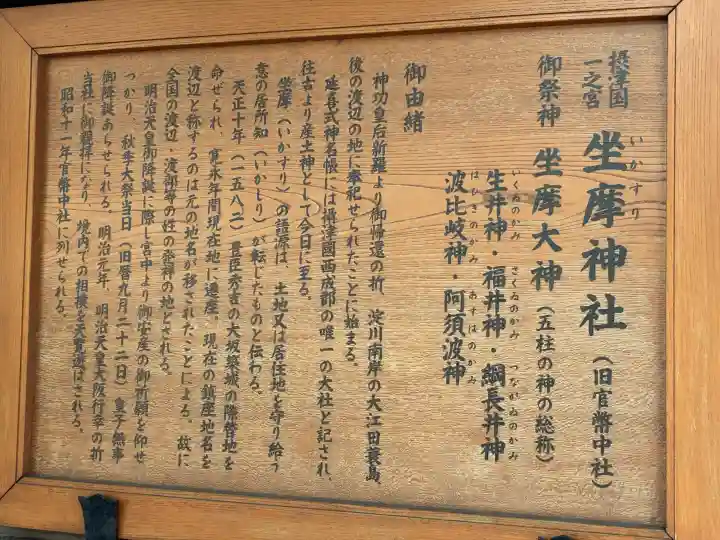 摂津国
一之宮
坐摩神社（旧官幣中社）
いかすり
御祭神 坐摩大神（五柱の神の総称）
生井神・福井神・綱長井神
いくゐのかみ さくゐのかみ つながゐのかみ
波比岐神・阿須波神
はひきのかみ あすはのかみ
御由緒
神功皇后新羅より御帰還の折、淀川南岸の大江田蓑島、
後の渡辺の地に奉祀せられたことに始まる。
延喜式神名帳には摂津國西成郡の唯一の大社と記され、
往古より産土神として今日に至る。
坐摩（いかすり）の語源は、土地又は居住地を守り給う
意の居所知（いかしり）が転じたものと伝わる。
天正十年（一五八二）豊臣秀吉の大坂築城の際替地を
命ぜられ、寛永年間現在地に遷座。現在の鎮座地名を
渡辺と称するのは元の地名が移されたことによる。故に
全国の渡辺・渡部等の姓の発祥の地とされる。
明治天皇御降誕に際し宮中より御安産の御祈願を仰せ
つかり、秋季大祭当日（旧暦九月二十二日）皇子無事
御降誕あらせられる。明治元年、明治天皇大阪行幸の折
当社に御親拝になり、境内での相撲を天覧遊ばされる。
昭和十一年官幣中社に列せられる。